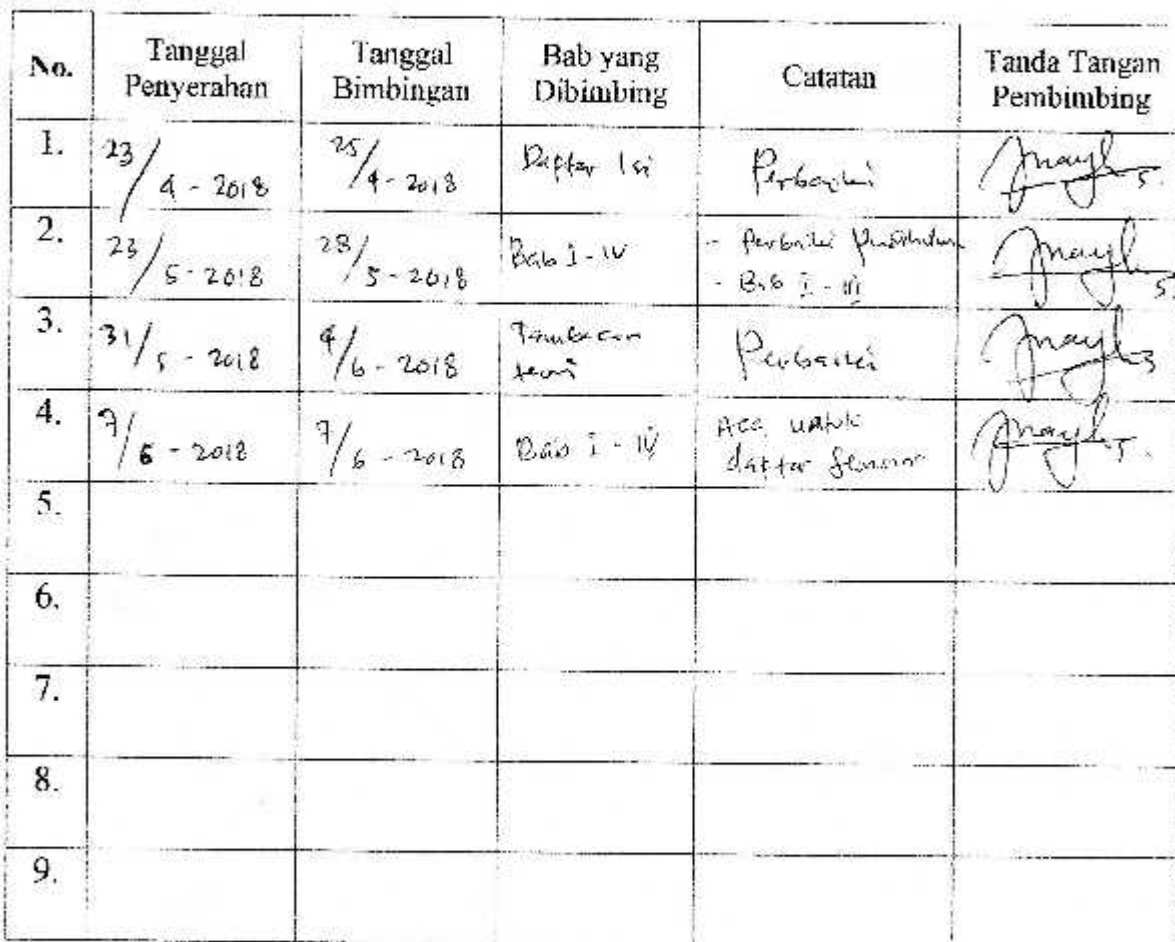 No. Tanggal Penyerahan Tanggal Bimbingan Bab yang Dibimbing Catatan Tanda Tangan Pembimbing
1. 23/4 - 2018 25/4 - 2018 Daftar Isi Perbaiki
2. 23/5 - 2018 28/5 - 2018 Bab I - IV - Perbaiki
- Bab I - IV
3. 31/5 - 2018 4/6 - 2018 Perbaiki
teori
4. 7/6 - 2018 7/6 - 2018 Bab I - IV Acc untuk
daftar Seminar
5.
6.
7.
8.
9.